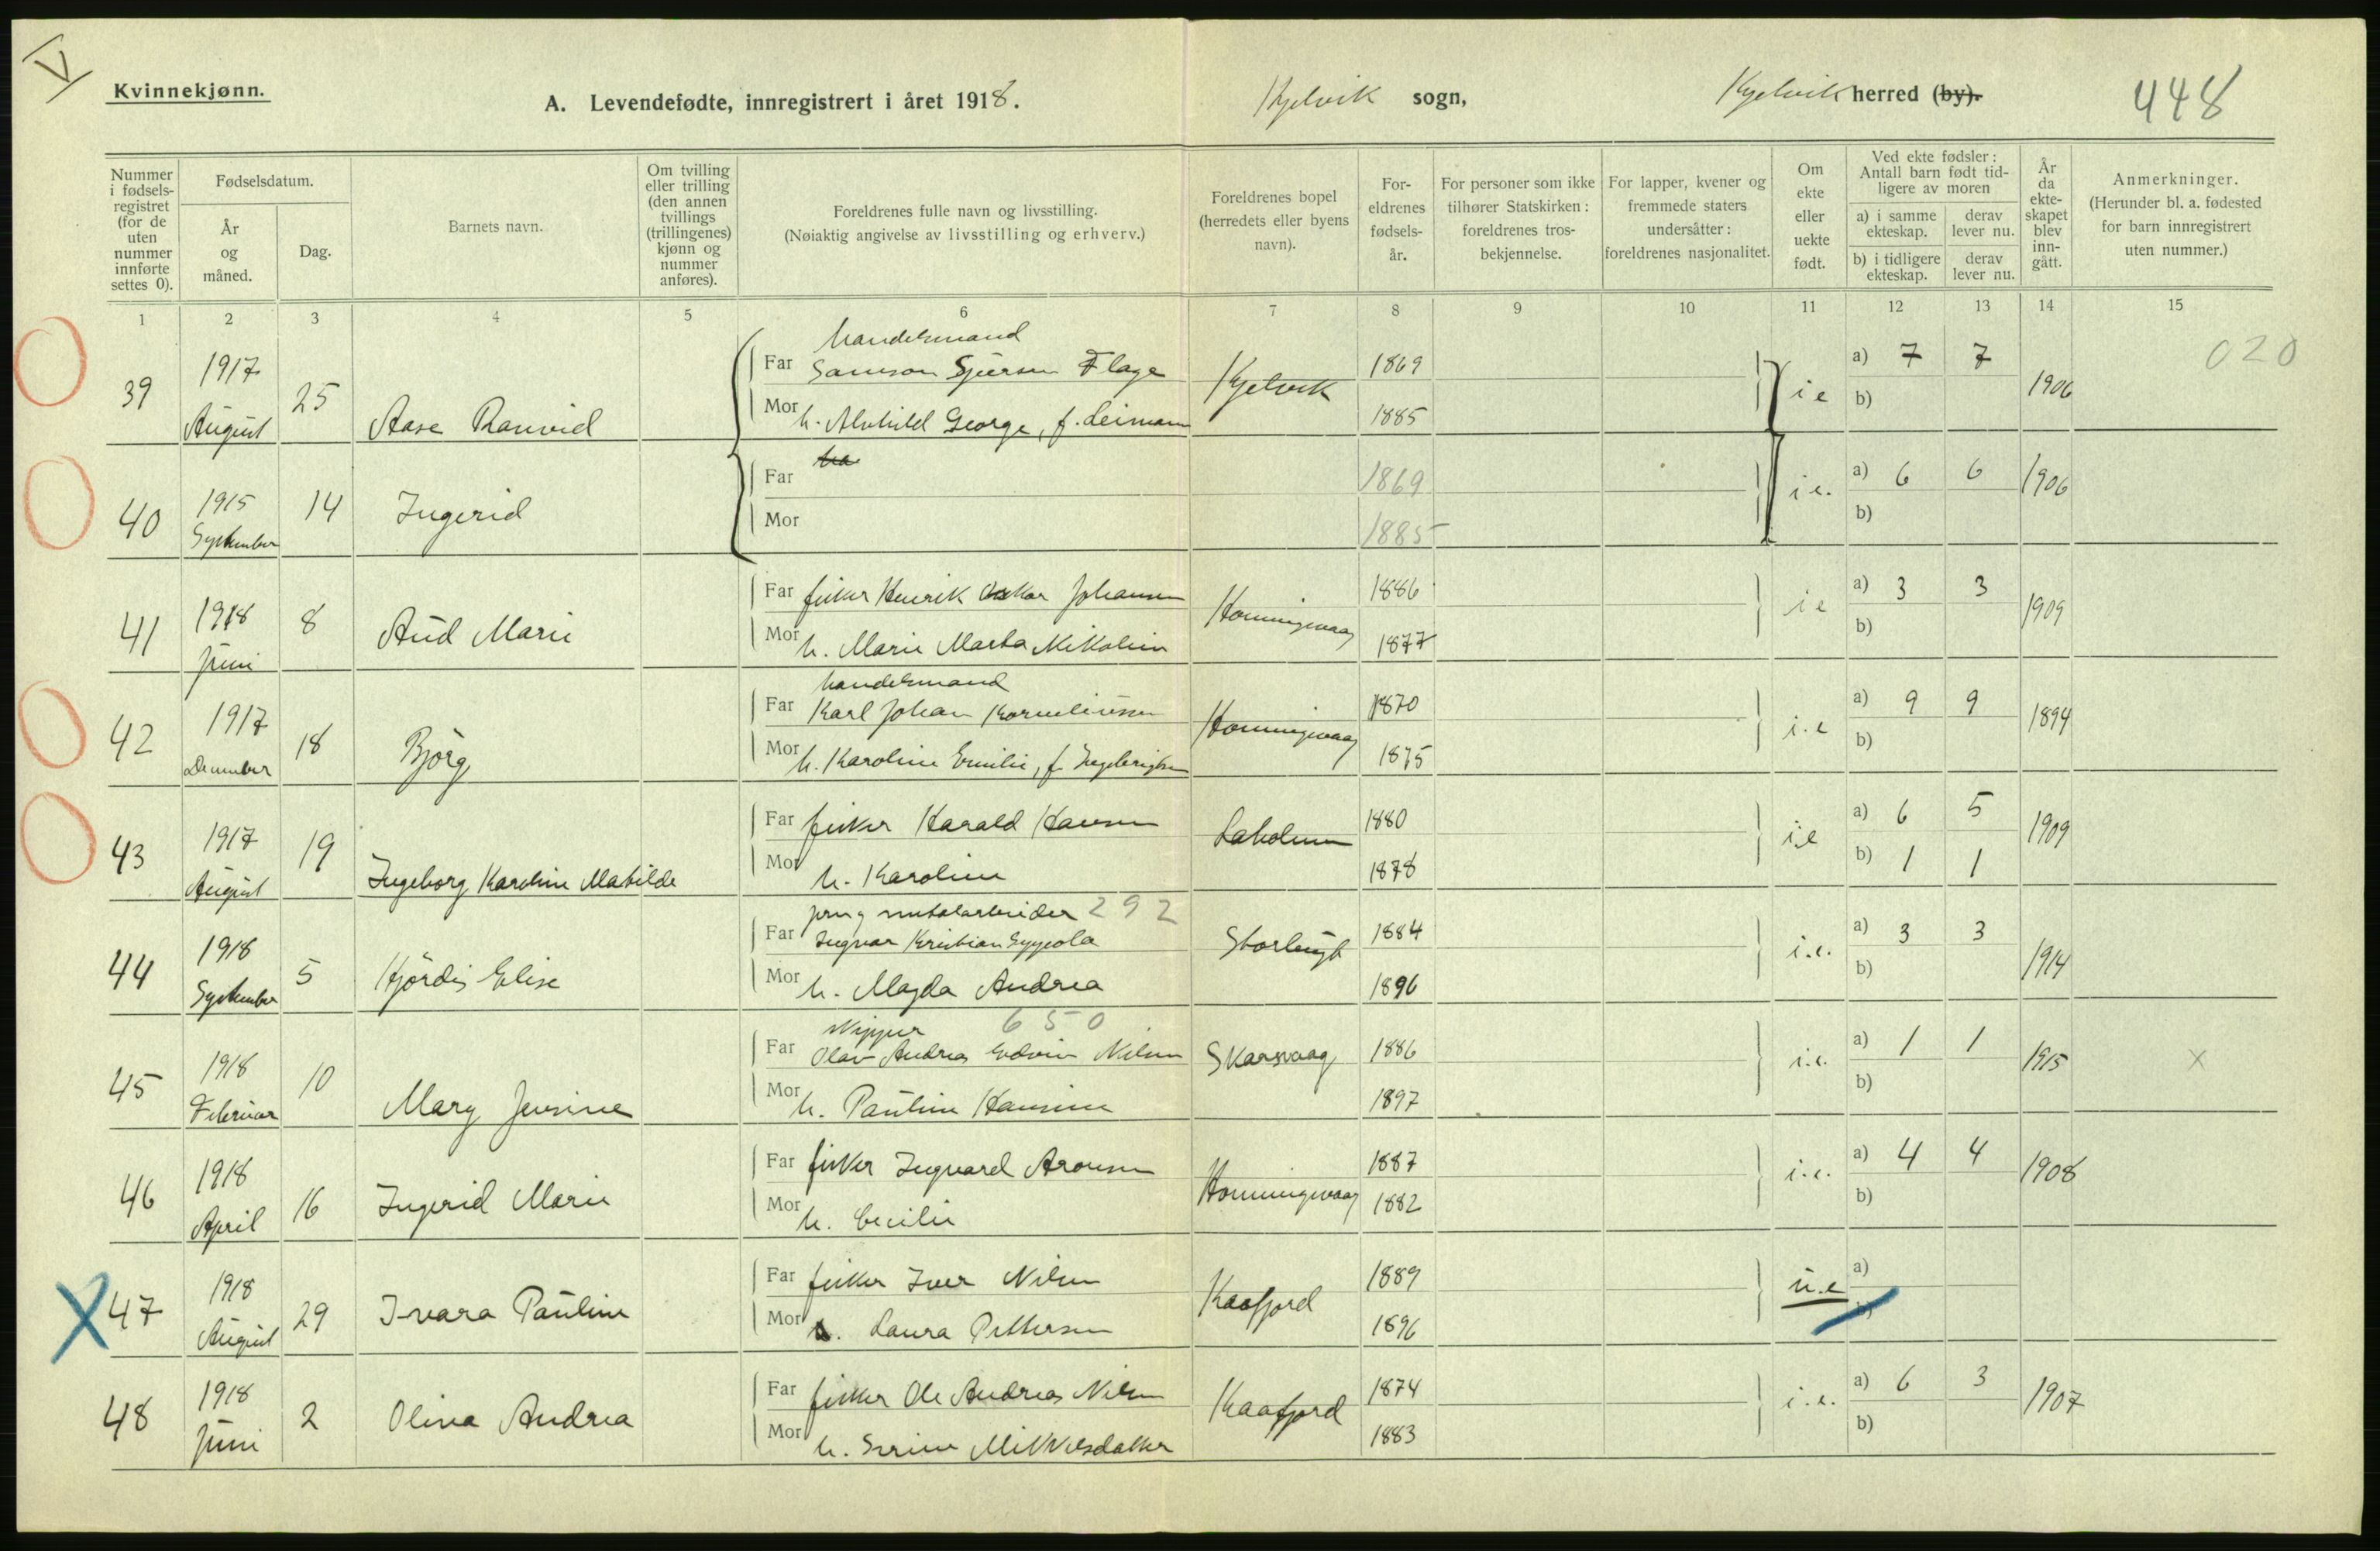 V
Kvinnekjønn.
A. Levendefødte, innregistrert i året 1918.
Kjelvik sogn,
Kjelvik herred (by).
448
Nummer i fødsels-registret (for de uten nummer innførte settes 0).
Fødselsdatum.
År og måned.
Dag.
Barnets navn.
Om tvilling eller trilling (den annen tvillings (trillingenes) kjønn og nummer anføres).
Foreldrenes fulle navn og livsstilling.
(Nøiaktig angivelse av livsstilling og erhverv.)
Foreldrenes bopel (herredets eller byens navn).
For-eldrenes fødsels-år.
For personer som ikke tilhører Statskirken: foreldrenes tros-bekjennelse.
For lapper, kvener og fremmede staters undersåtter: foreldrenes nasjonalitet.
Om ekte eller uekte født.
Ved ekte fødsler: Antall barn født tid-ligere av moren
a) i samme ekteskap.
derav lever nu.
b) i tidligere ekteskap.
derav lever nu.
År da ekte-skapet blev inn-gått.
Anmerkninger.
(Herunder bl. a. fødested for barn innregistrert uten nummer.)
1 2 3 4 5 6 7 8 9 10 11 12 13 14 15
handelsmand
39 1917 August 25 Aase Ranvid
Far Samson Sjursen Flage Kjelvik 1869 i e a) 7 7 1906 020
Mor h. Alvhild George, f. Leimann 1885 b)
40 1915 September 14 Ingerid
Far 1869 i e. a) 6 6 1906
Mor 1885 b)
41 1918 Juni 8 Aud Marie
Far fisker Henrik Oskar Johansen Honningsvaag 1886 i e a) 3 3 1909
Mor h. Marie Marta Nikoline 1877 b)
handelsmand
42 1917 December 18 Bjørg
Far Karl Johan Korneliussen Honningsvaag 1870 i.e a) 9 9 1894
Mor h. Karoline Emilie, f. Ingebrigtsen 1875 b)
43 1917 August 19 Ingeborg Karoline Matilde
Far fisker Harald Hansen Laholmen 1880 i.e a) 6 5 1909
Mor h. Karoline 1878 b) 1 1
292
44 1918 September 5 Hjørdis Elise
Far Ingvar Kristian 1884 i.e. a) 3 3 1914
Mor h. Magda Andrea 1896 b)
skipper 650
45 1918 Februar 10 Mary Jensine
Far Olav Andreas Edvin Nilsen Skarsvaag 1886 i.e. a) 1 1 1915 x
Mor h. Pauline Hansine 1897 b)
46 1918 April 16 Ingerid Marie
Far fisker Ingvard Aronsen Honningsvaag 1887 i.e. a) 4 4 1908
Mor h. Cecilie 1882 b)
X 47 1918 August 29 Ivara Pauline
Far fisker Iver Nilsen Kaafjord 1889 u.e a)
Mor Laura Pettersen 1896 b)
48 1918 Juni 2 Olina Andrea
Far fisker Ole Andreas Nilsen Kaafjord 1874 i.e. a) 6 3 1907
Mor h. Serine Mikkelsdatter 1883 b)